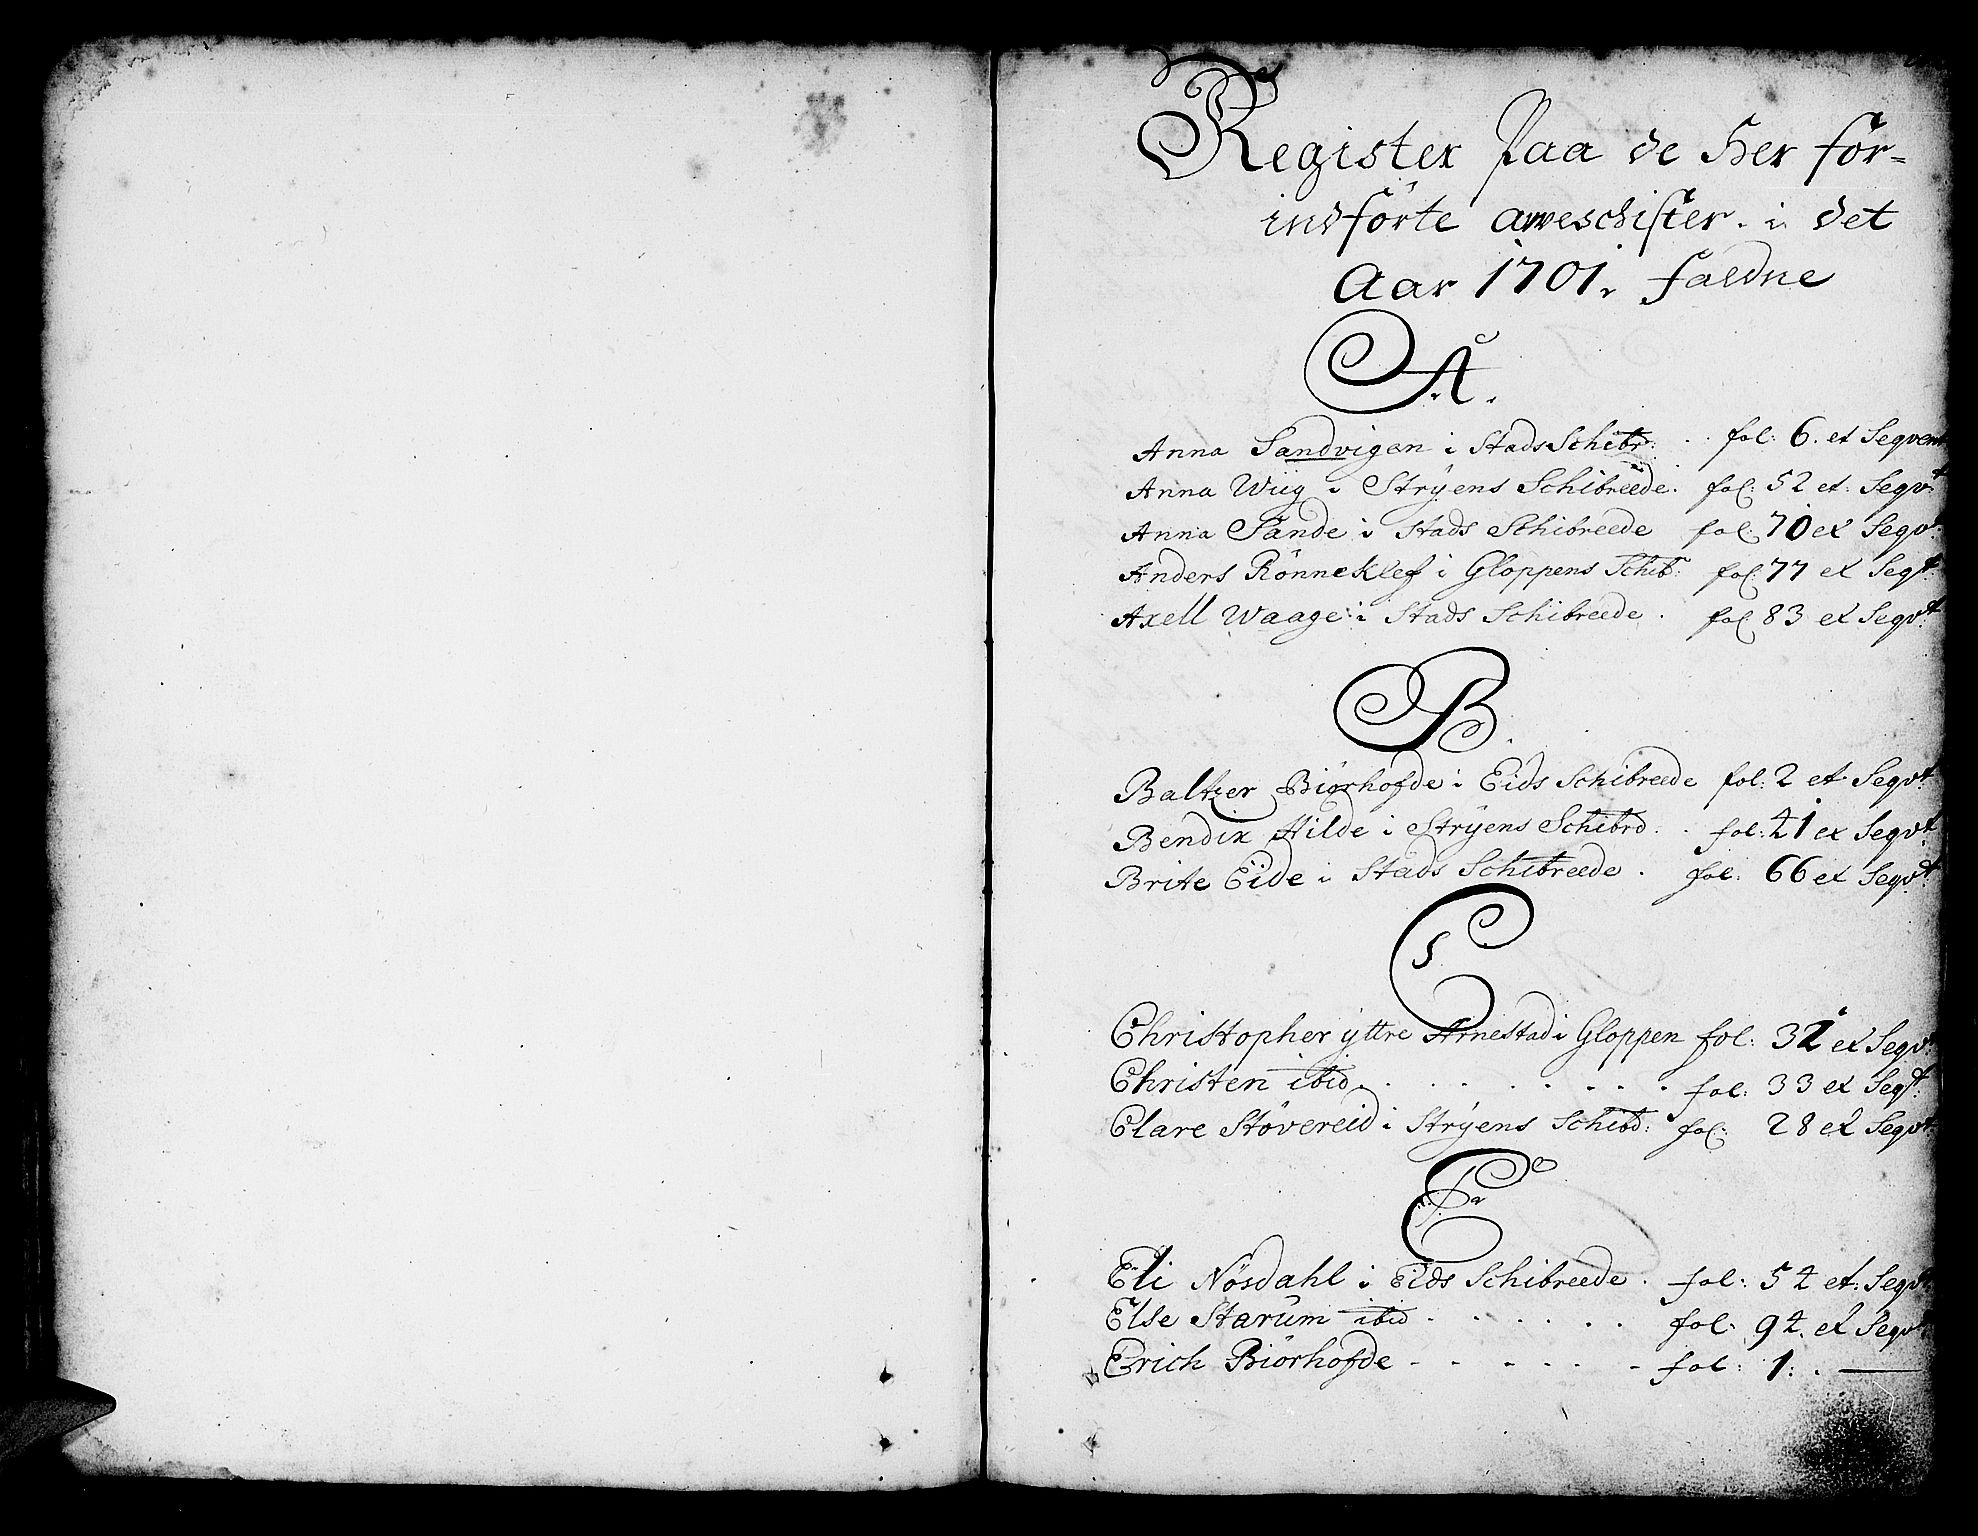 Register Paa de Her for-
indförte arveschifter i det
Aar 1701. faldne
A.
Anna Sandvigen i Stads Schibr: . . fol: 6. et Seqvent
Anna Wiig i Strÿens Schibreede. fol: 52 et: Seqvt
Anna Sande i Stads Schibreede fol: 70 et Seqvt
Anders Rönneklef i Gloppens Schibr: fol: 77 et Seqt
Axell Waage i Stads Schibreede . fol: 83 et Seqvt
B.
Baltzer Biörhofde i Eids Schibreede fol: 2 et Seqvt
Bendix Hilde i Strÿens Schibrd: . fol: 41 et Seqvt
Brite Eide i Stads Schibreede . fol: 66 et Seqvt
C
Christopher yttre Arnestad i Gloppen fol: 32 et Seqvt
Christen ibid. . . . . . . . fol: 33 et Seqt
Clare Stövereid i Strÿens Schibd: fol: 28 et Seqvt
E
Eli Nösdahl i Eids Schibreede . fol: 54 et: Seqvt
Else Starum ibid . . . . . . fol: 94. et Seqvt
Erich Biörhofde - - - - - - fol: 1: . —